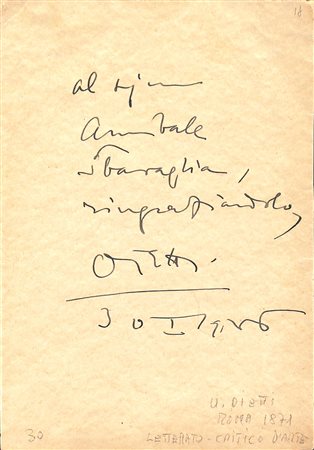 18
al
Annibale
Sbaraglia,
ringraziandolo,
Ojetti.
30 I
U. OJETTI
ROMA 1871
30
LETTERATO - CRITICO D'ARTE